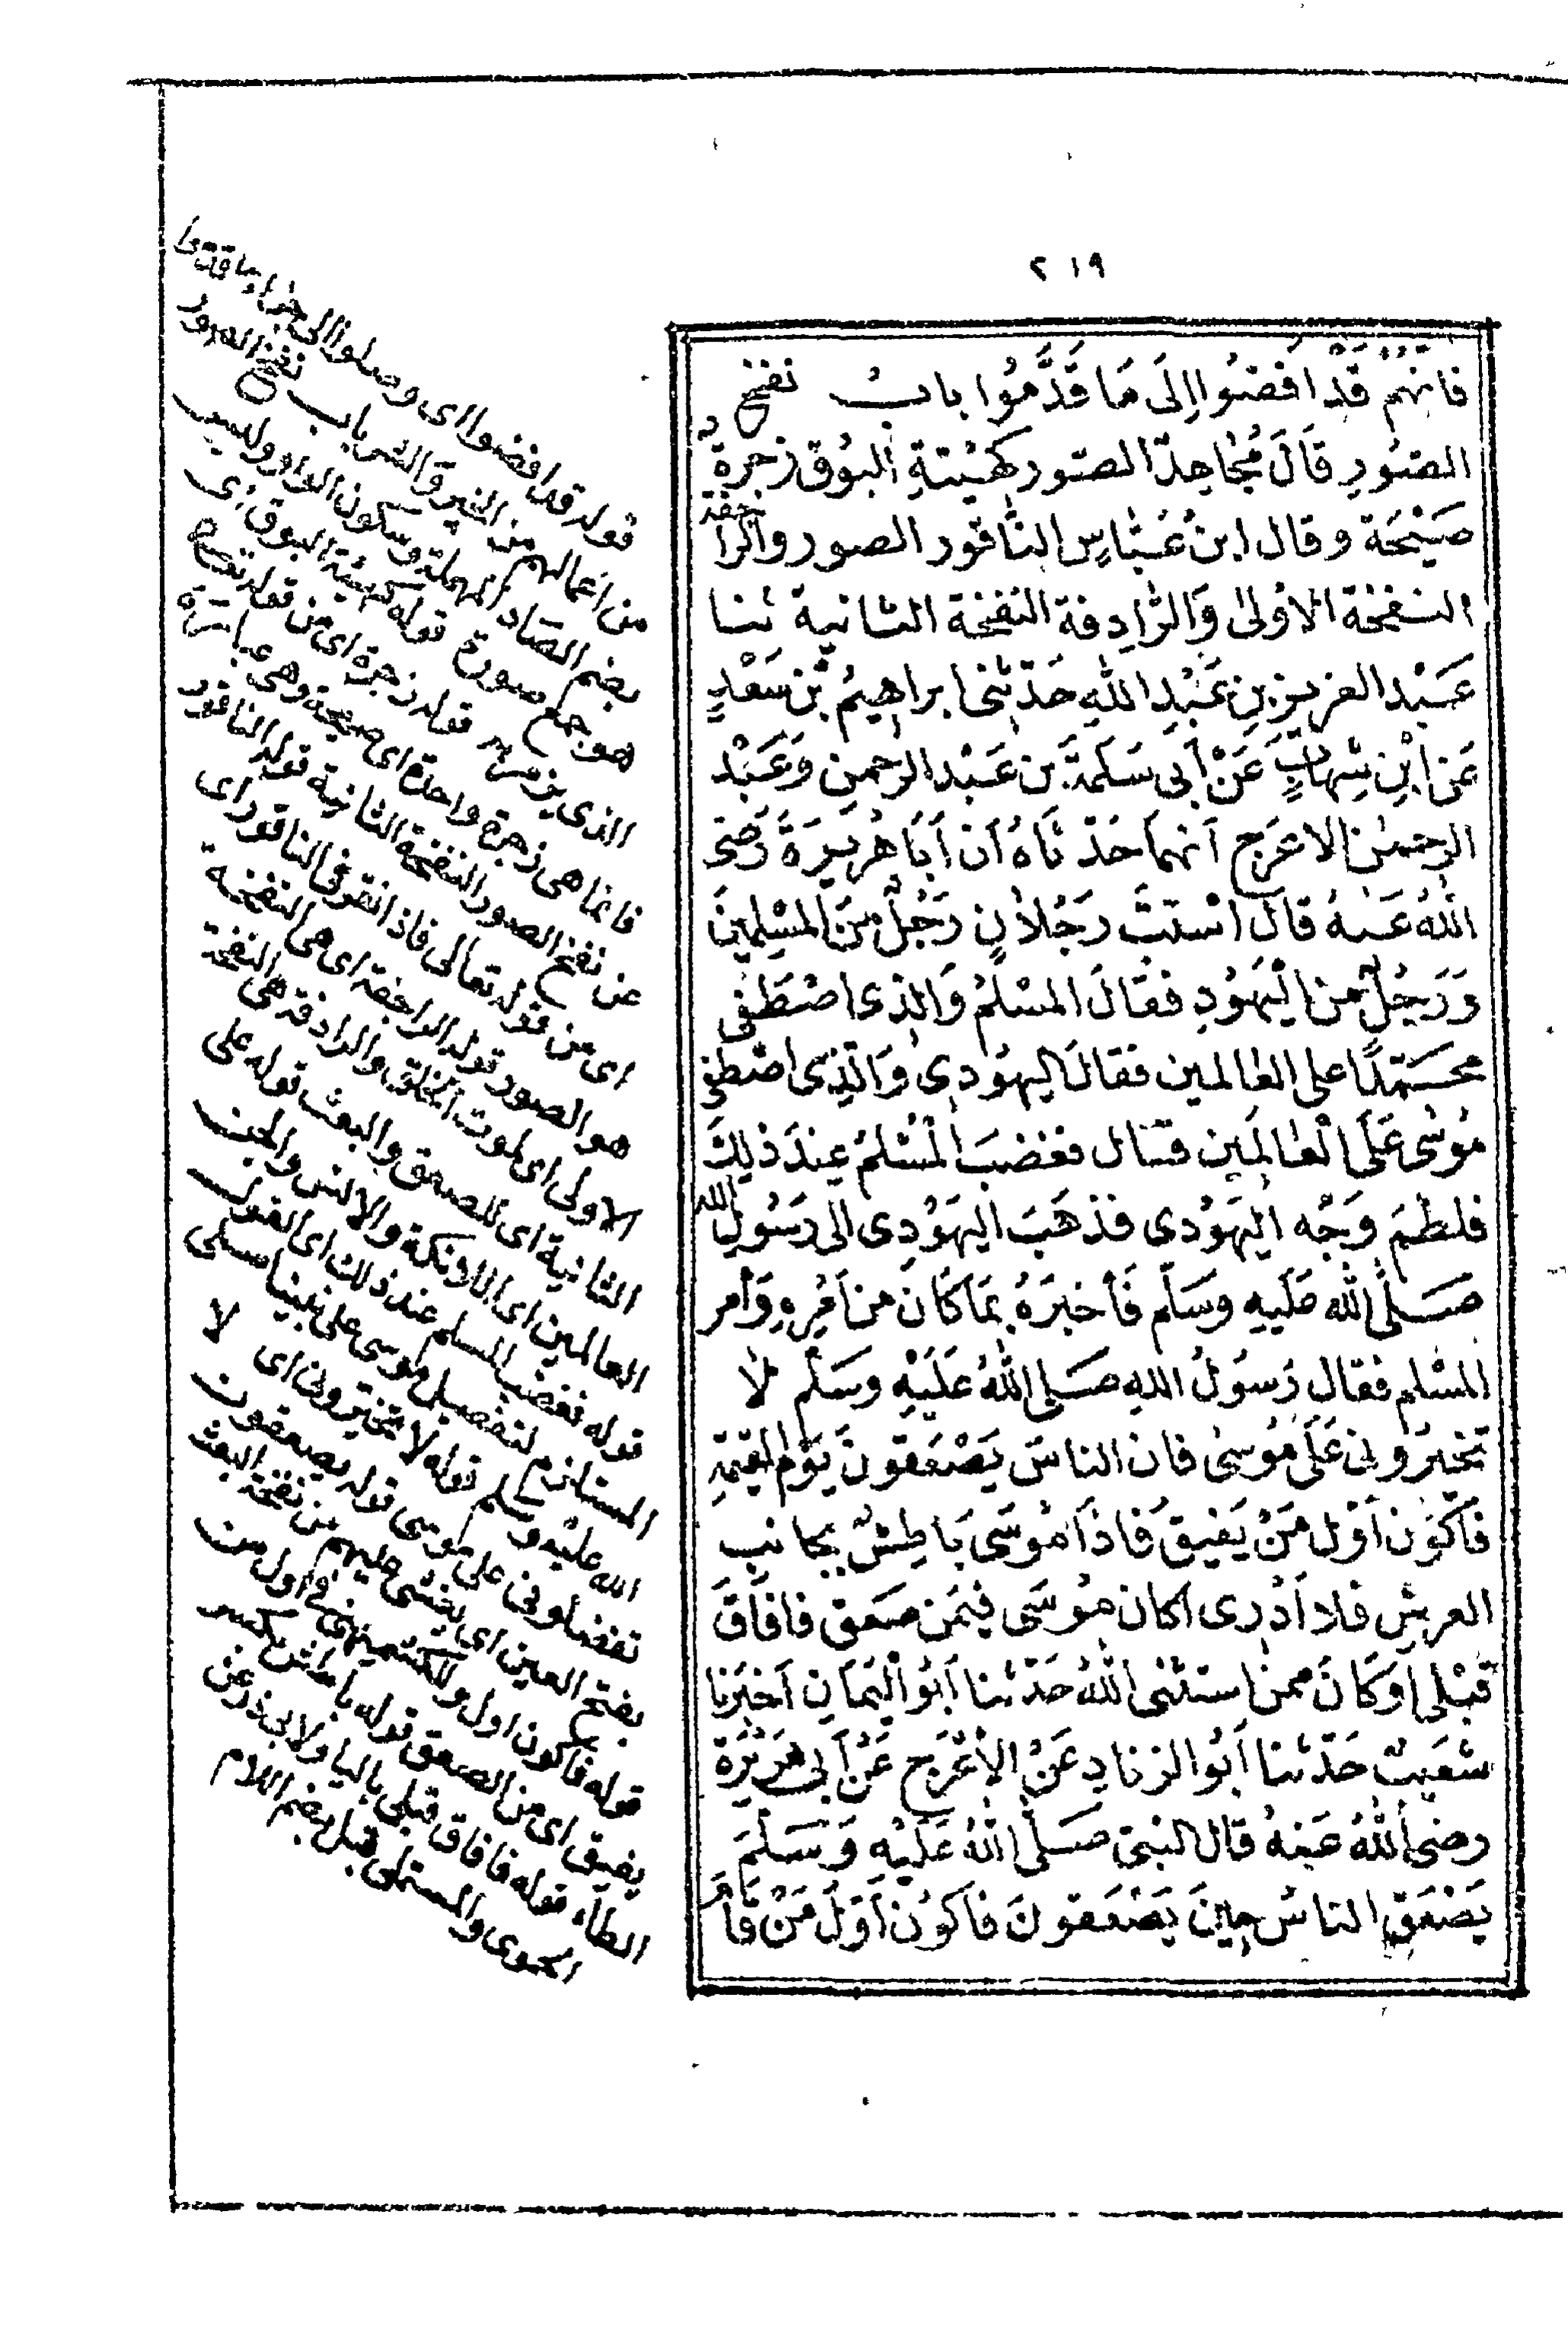 ٢١٩
فانهم قَدْ اَفضَوا اِلَى مَا قَدَّمُوا باب نفخ
الصّورِ قَالَ مُجَاهِدٌ الصّور كهَيْئةِ البُوق زجرة
صَيْحَة وقال ابنُ عَبّاسٍ النَّاقور الصور والراجفة
النفخة الاُولى وَالرَّادِفة النفخة الثانية ثنا
عَبْد العزيز بنِ عَبْدِ اللهِ حَدّثنى ابراهِيمُ بْن سَعْدٍ
عَن ابْنِ شِهَابٍ عَنْ أبى سَلمَةَ بن عَبْد الرحمن وَعَبْد
الرحمن الاعرَج اَنهما حَدّثاهُ أن أبَا هُرَيرَةَ رَضى
اللهُ عَنهُ قال اسْتَبَّ رَجُلانِ رَجُلٌ مِنَ المسْلِمينَ
وَرَجُلٌ من اليَهُودِ فقالَ المسْلمُ وَالذى اصْطَفى
محمّدًا على العالمين فقالَ اليَهُودىُّ وَالّذِى اصْطفى
مُوسٰى عَلَى الْعٰالَمِين قال فغضبَ الْمُسْلمُ عِندَ ذٰلِكَ
فلطمَ وَجْه اليَهُودى فذهَبَ اليَهُودى الى رَسُولِ الله
صَلّى الله عَلَيهِ وسَلّم فَأخبَرَهُ بمَا كَانَ من اَمْرِهِ وَأمر
المسْلم فقال رَسُولُ اللهِ صَلى اللهُ عَلَيْهِ وسَلّم لاٰ
تخيّرُونى عَلَى مُوسىٰ فان الناسَ يَصْعَقونَ يَوْم القيمَةِ
فَأكُون اَوّل مَنْ يَفيقُ فَاذَا مُوسَى بَاطِشٌ بجانب
العرشِ فلا اَدْرى اكان مُوسَى فيمَن صَعق فافَاقَ
قبْلى اوْ كَانَ ممن استثنى اللهُ حَدّثنا اَبُو الْيَمَانِ اَخبرَنا
شعَيبٌ حَدّثنا اَبُو الزنادِ عَنْ الاَعْرَج عَنْ أبى هُرَيْرَة
رضى اللهُ عَنهُ قال النبىّ صَلّى اللهُ عَلَيْهِ وَسَلّمَ
يَصْعَق الناسُ حِينَ يَصْعَقونَ فأكُون اَوّلَ مَنْ قَامَ
قوله قد افضوا اى وصلوا الى جزاء ما قدموا
من اعمالهم من الخير والشر باب نفخ الصور
بضم الصاد المهملة وسكون الواو وليس
هو جمع صورة قوله كهيئة البوق اى
الذى يزمر به قوله زجرة اى من قوله تعالى
فانما هى زجرة واحدة اى صيحة وهى عبارة
عن نفخ الصور النفخة الثانية قوله الناقور
اى من قوله تعالى فاذا نقر فى الناقور اى
هو الصور قوله الراجفة اى هى النفخة
الاولى اى لموت الخلق والرادفة هى النفخة
الثانية اى للصعق والبعث قوله على
العالمين اى الملائكة والانس والجن
قوله فغضب المسلم عند ذلك اى القول
المستلزم لتفضيل موسى على نبينا صلى
الله عليه وسلم قوله لا تخيرونى اى لا
تفضلونى على موسى قوله يصعقون
بفتح العين اى يغشى عليهم من نفخة البعث
قوله فأكون اول ولكشميهنى فى اول من
يفيق اى من الصعق قوله باطش بكسر
الطاء قوله فافاق قبلى باليا ولابى ذر عن
الحموى والمستملى قبل بضم اللام